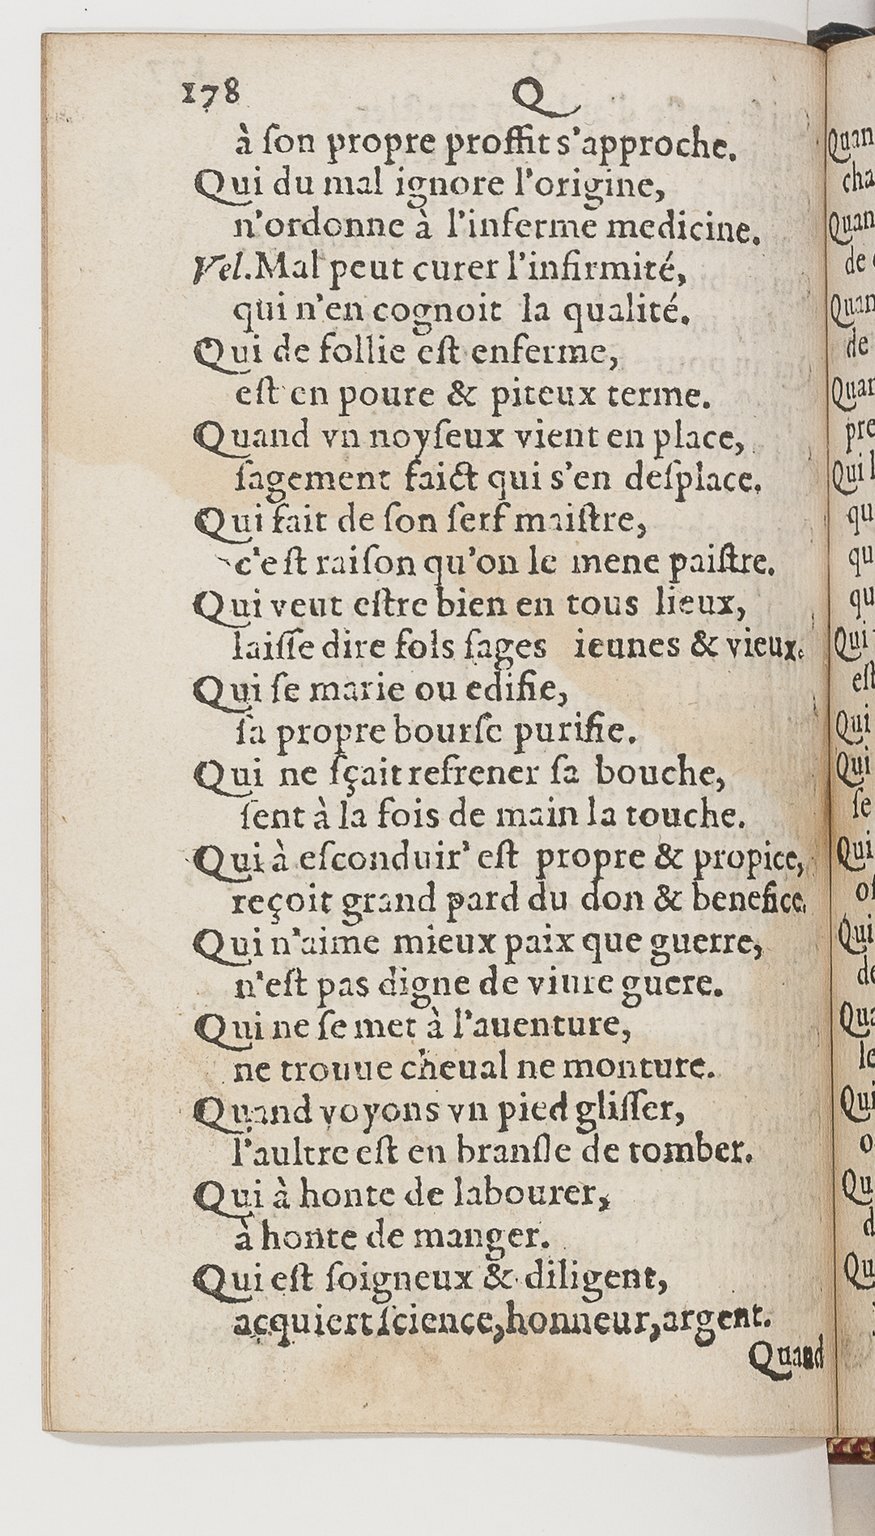 178 Q
à ſon propre proffit s'approche.
Qui du mal ignore l'origine,
n'ordonne à l'inferme medicine.
Vel. Mal peut curer l'infirmité,
qui n'en cognoit la qualité.
Qui de follie eſt enferme,
eſt en poure & piteux terme.
Quand vn noyſeux vient en place,
ſagement faict qui s'en deſplace.
Qui fait de ſon ſerf maiſtre,
c'eſt raiſon qu'on le mene paiſtre.
Qui veut eſtre bien en tous lieux,
laiſſe dire fols ſages ieunes & vieux.
Qui ſe marie ou edifie,
ſa propre bourſe purifie.
Qui ne ſçait refrener ſa bouche,
ſent à la fois de main la touche.
Qui à eſconduir' eſt propre & propice,
reçoit grand pard du don & benefice.
Qui n'aime mieux paix que guerre,
n'eſt pas digne de viure guere.
Qui ne ſe met à l'auenture,
ne trouue cheual ne monture.
Quand voyons vn pied gliſſer,
l'aultre eſt en branſle de tomber.
Qui à honte de labourer,
à honte de manger.
Qui eſt ſoigneux & diligent,
acquiert ſcience, honneur, argent.
Quand